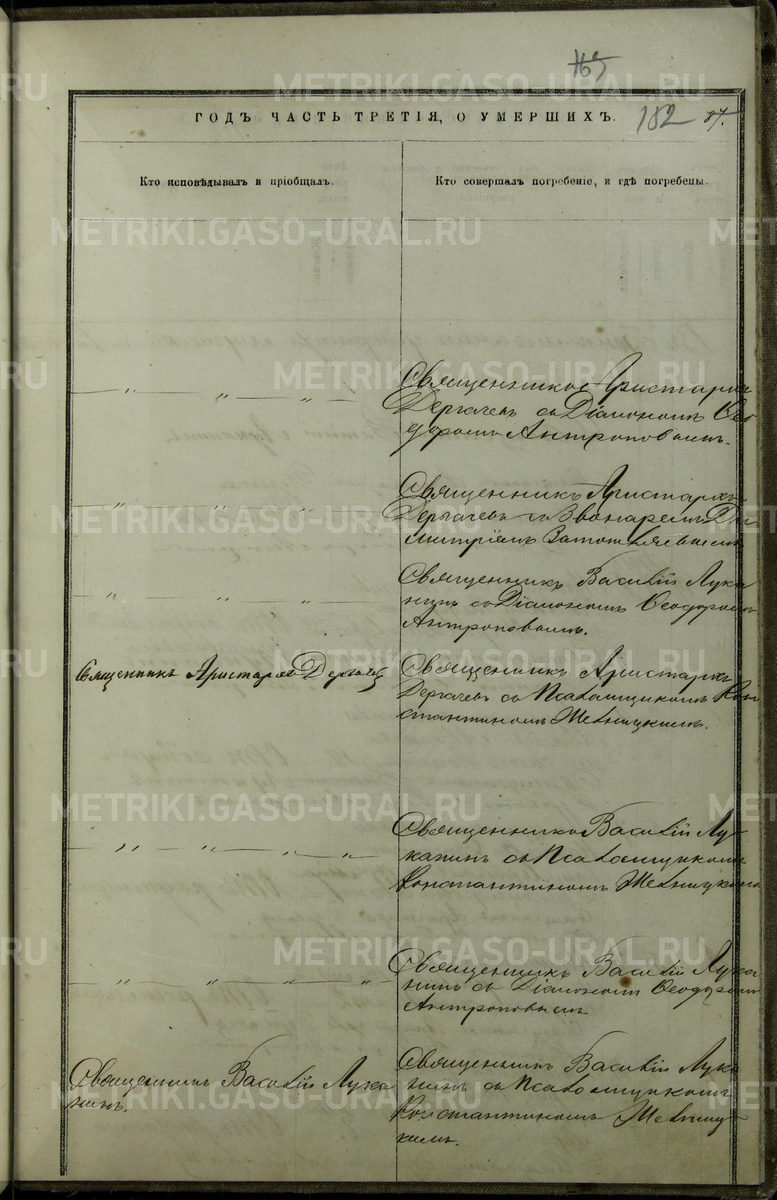 165
182 87.
ГОДЪ ЧАСТЬ ТРЕТІЯ, О УМЕРШИХЪ.
Кто исповѣдывалъ и пріобщалъ.
Кто совершалъ погребеніе, и гдѣ погребены.
METRIKI.GASO-URAL.RU
— „ — „ — „ —
Священникъ Аристархъ
Дергачевъ съ Діакономъ Ѳео
доромъ Антроповымъ.
— „ — „ — „ —
Священникъ Аристархъ
Дергачевъ съ Звонаремъ Ди
митріемъ
— „ — „ — „ —
Священникъ Василій Лука
нинъ съ Діакономъ Ѳеодоромъ
Антроповымъ.
Священникъ Аристархъ Дергачевъ
Священникъ Аристархъ
Дергачевъ съ Псаломщикомъ Кон
стантиномъ
— „ — „ — „ — „ —
Священникъ Василій Лу
канинъ съ Псаломщикомъ
Константиномъ
— „ — „ — „ — „ —
Священникъ Василій Лука
нинъ съ Діакономъ Ѳеодоромъ
Антроповымъ
Священникъ Василій Лука
нинъ.
Священникъ Василій Лука
нинъ съ Псаломщикомъ
Константиномъ